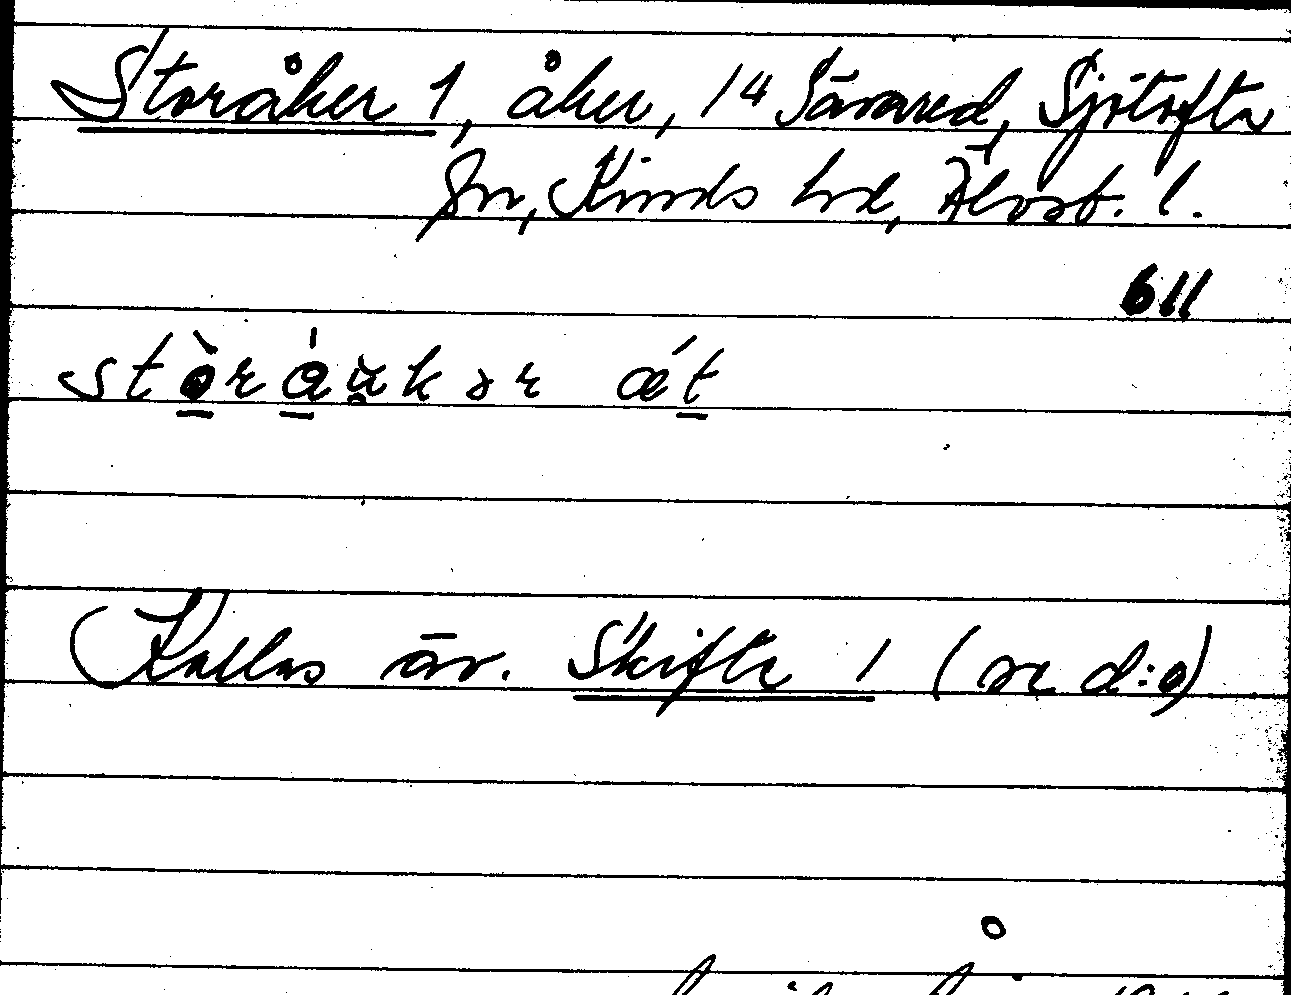 Storåker 1, åker, 14 Sävared, Sjötofta
sn, Kinds hd, Älvsb. l.
611
Kallas äv. Skifte 1 (se d:o)